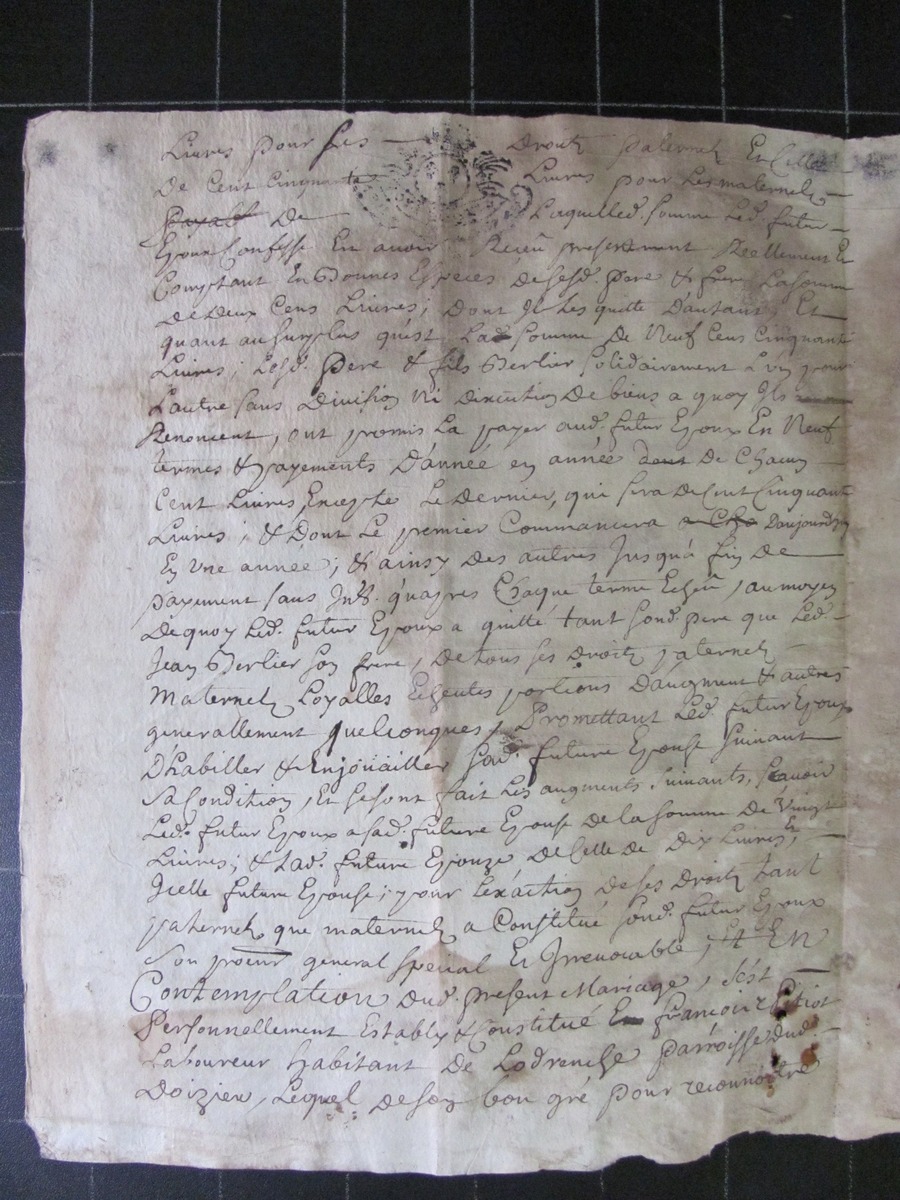 Livres pour ses — Droits paternels Et Celle
De Cent Cinquante Livres pour Les maternels —
payabl De — Laquelled. somme Led. futur —
Epoux Confesse En avoir Receu presentement Reellement Et
Comptant En Bonnes Especes desesd. pere & frere Lasomme
de Deux Cens Livres; Dont Il Les quitte D'autant; Et
quant au surplus qu'est Lad. somme De Neuf Cens Cinquante
Livres; Lesd. Pere & fils Berlier solidairement L'un pour
L'autre sans Division Ni Discution De biens a quoy Ils
Renoncent, ont promis La payer aud. futur Epoux En Neuf
termes & payements D'année en année dont De Chacun
Cent Livres, Excepte Le Dernier, qui sera de Cent Cinquante
Livres; & Dont Le premier Commancera Daujourdhuy
En Une année; & ainsy Des autres Jusqu'a fin De —
payement sans Int. qu'apres Chaque terme Escheu, au moyen
De quoy Led. futur Epoux a quitté tant sond. pere que Led. —
Jean Berlier son frere, De tous ses Droits paternels
Maternels Loyalles Escheutes portions D'augment & autres
generallement quelconques, Promettant Led. futur Epoux
D'habiller & Enjoüailler sad. future Epouse suivant
Sa Condition, Et se sont fait Les augments suivants, sçavoir
Led. futur Epoux a sad. future Epouse de la somme De Vingt
Livres; & Lad. future Epouze De Celle De Dix Livres; —
Icelle future Epouse; pour L'exaction De ses Droits tant
paternels que maternels a Constitué sond. futur Epoux
Son procur general special Et Irrevocable; Et EN
Contemplation Dud. present Mariage, s'est —
Personnellement Estably & Constitué En François Petiot
Laboureur habitant De Lodrenche parroisse dud.
Doizieu, Lequel de son bon gré pour reconnoitre